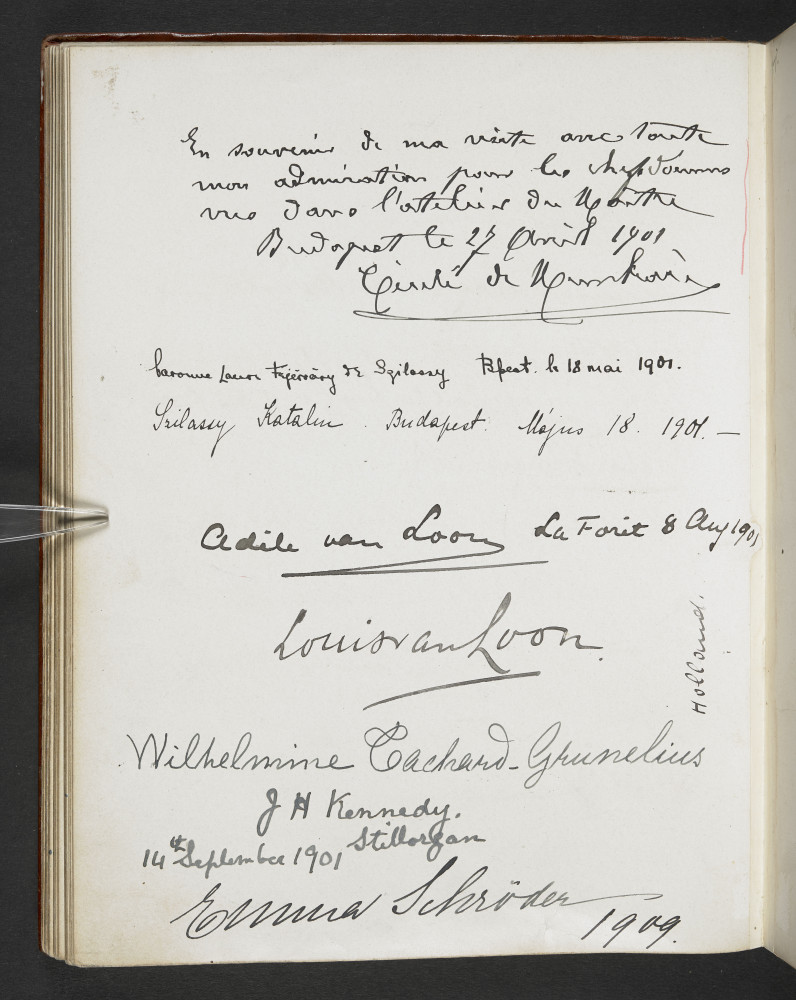 En souvenir de ma visite avec toute
mon admiration pour les chefs d'oeuvres
vus dans l'atelier du Maître
Budapest le 27 Avril 1901
Cécile de Munkácsy
baronne Laure Fejérváry de Szilassy Bpest. le 18 mai 1901.
Szilassy Katalin. Budapest. Május 18. 1901. —
Adèle van Loon La Forêt 8 Aug 1901
Louis van Loon.
Holland.
Wilhelmine Tachard-Grunelius
J H Kennedy.
Stillorgan
14th September 1901
Emma Schröder
1909.